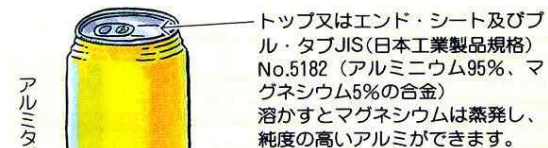 トップ又はエンド・シート及びプ
ル・タブJIS(日本工業製品規格)
No.5182（アルミニウム95%、マ
グネシウム5%の合金）
溶かすとマグネシウムは蒸発し、
純度の高いアルミができます。
アルミタ